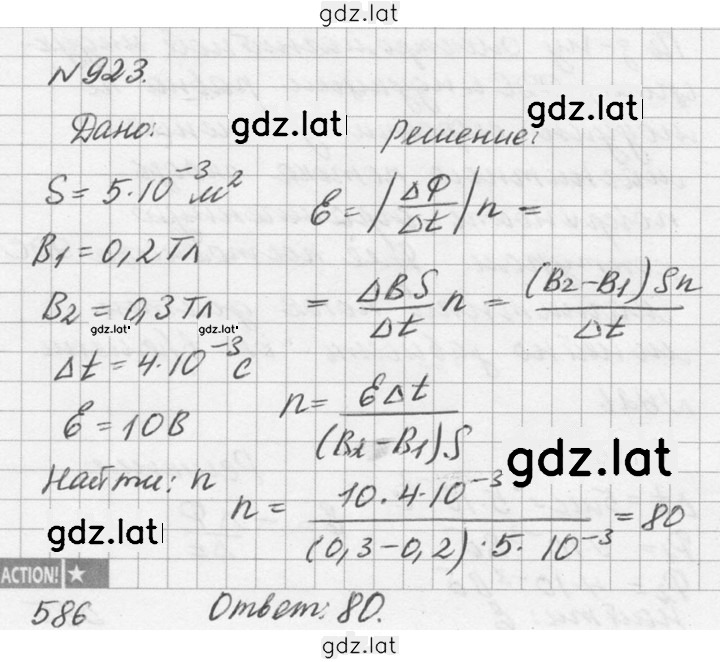 gdz.lat
№923.
Дано:
gdz.lat
gdz.lat
Решение:
S = 5·10⁻³ м²
B₁ = 0,2 Тл
B₂ = 0,3 Тл
gdz.lat
gdz.lat
Δt = 4·10⁻³ с
Ɛ = 10 В
Найти: n
gdz.lat
Ɛ = |ΔФ/Δt| n =
= ΔBS/Δt n = (B₂−B₁)Sn/Δt
n = ƐΔt/(B₂−B₁)S
gdz.lat
n = 10·4·10⁻³/(0,3−0,2)·5·10⁻³ = 80
ACTION! ★
586
Ответ: 80.
gdz.lat